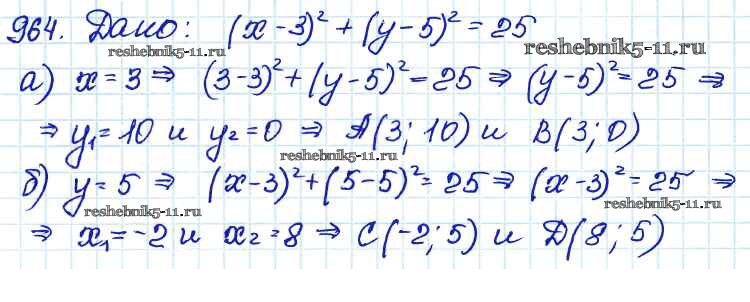 964. Дано: (x - 3)² + (y - 5)² = 25
reshebnik5-11.ru reshebnik5-11.ru
а) x = 3 ⇒ (3 - 3)² + (y - 5)² = 25 ⇒ (y - 5)² = 25 ⇒
⇒ y₁ = 10 и y₂ = 0 ⇒ A(3; 10) и B(3; 0)
reshebnik5-11.ru
б) y = 5 ⇒ (x - 3)² + (5 - 5)² = 25 ⇒ (x - 3)² = 25 ⇒
reshebnik5-11.ru reshebnik5-11.ru
⇒ x₁ = -2 и x₂ = 8 ⇒ C(-2; 5) и D(8; 5)